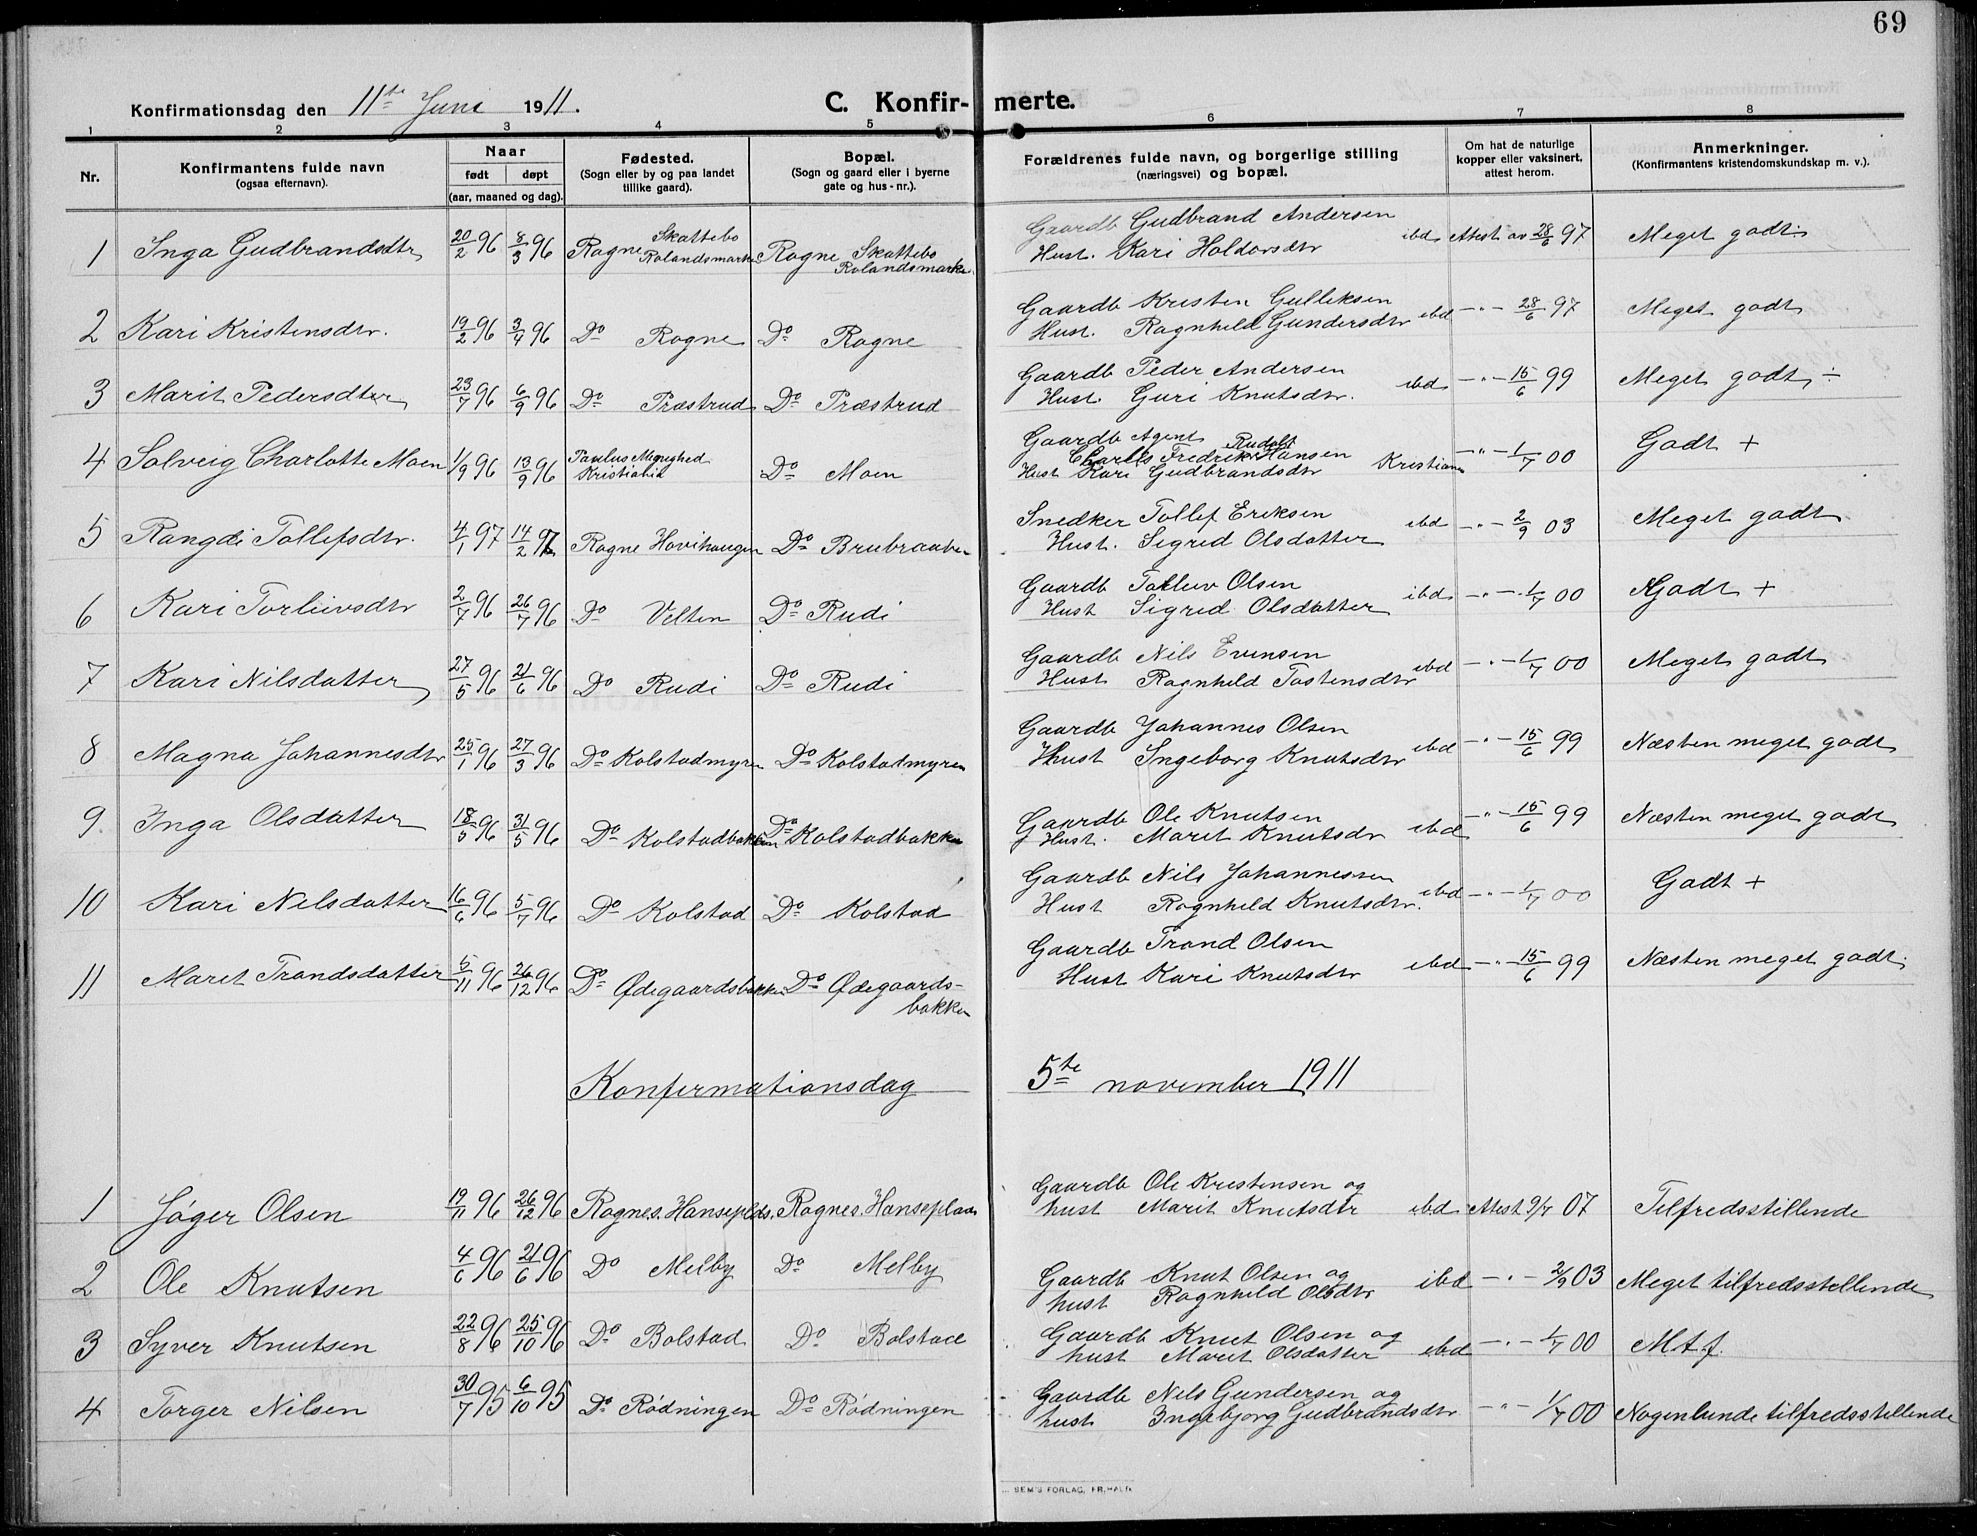 69
Konfirmationsdag den 11te Juni 1911.
C. Konfirmerte.
1 2 3 4 5 6 7 8
Nr.
Konfirmantens fulde navn
(ogsaa efternavn).
Naar
født døpt
(aar, maaned og dag).
Fødested.
(Sogn eller by og paa landet
tillike gaard).
Bopæl.
(Sogn og gaard eller i byerne
gate og hus-nr.).
Forældrenes fulde navn, og borgerlige stilling
(næringsvei) og bopæl.
Om hat de naturlige
kopper eller vaksinert,
attest herom.
Anmerkninger.
(Konfirmantens kristendomskundskap m. v.).
1 Inga Gudbrandsdtr 20/2 96 8/3 96 Rogne Skattebo Rolandsmarken Rogne Skattebo Rolandsmarken Gaardb Gudbrand Andersen
Hust. Kari Haldorsdtr ibd Attest av 28/6 97 Meget godt
2 Kari Kristensdtr. 19/2 96 3/4 96 Do Rogne Do Rogne Gaardb Kristen Gulliksen
Hust. Ragnhild Gundersdtr ibd -"- 28/6 97 Meget godt
3 Marit Pedersdtter 23/7 96 6/9 96 Do Præstrud Do Præstrud Gaardb Peder Andersen
Hust. Guri Knutsdtr. ibd -"- 15/6 99 Meget godt ÷
4 Solveig Charlotte Moen 1/9 96 13/9 96 Paulus Menighed Kristiania Do Moen Gaardb Agent
Charles Fredrik Rudolf Hansen
Hust Kari Gudbrandsdtr Kristiania -"- 1/7 00 Godt +
5 Rangdi Tollefsdtr. 4/1 97 14/2 97 Rogne Hovihaugen Do Brubraaten Snedker Tollef Eriksen
Hust. Sigrid Olsdatter ibd -"- 2/9 03 Meget godt
6 Kari Torleivsdtr 2/7 96 26/7 96 Do Velten Do Rudi Gaardb Olsen
Hust Sigrid Olsdatter ibd -"- 1/7 00 Godt +
7 Kari Nilsdatter 27/5 96 21/6 96 Do Rudi Do Rudi Gaardb Nils Evensen
Hust Ragnhild Tostensdtr ibd -"- 1/7 00 Meget godt
8 Magna Johannesdtr 25/1 96 27/3 96 Do Kolstadmyren Do Kolstadmyren Gaardb Johannes Olsen
Hust Ingeborg Knutsdtr ibd -"- 15/6 99 Næsten meget godt
9. Inga Olsdatter 18/5 96 31/5 96 Do Kolstadbakken Do Kolstadbakken Gaardb Ole Knutsen
Hust. Marit Knutsdr ibd -"- 15/6 99 Næsten meget godt
10 Kari Nilsdatter 16/6 96 5/7 96 Do Kolstad Do Kolstad Gaardb Nils Johannessen
Hust Ragnhild Knutsdtr. ibd -"- 1/7 00 Godt +
11 Marit Trondsdatter 5/11 96 26/12 96 Do Ødegaardsbakken Do Ødegaards-
bakken Gaardb Trond Olsen
Hust Kari Knutsdtr ibd -"- 15/6 99 Næsten meget godt
Konfirmationsdag 5te november 1911
1 Jøger Olsen 19/11 96 26/12 96 Rogne s. Hanseplds. Rogne s. Hanseplads Gaardb Ole Kristensen og
hust Marit Knutsdtr ibd Attest 9/7 07 Tilfredsstillende
2 Ole Knutsen 4/6 96 21/6 96 Do Melby Do Melby Gaardb Knut Olsen og
hust Ragnhild Olsdtr ibd -"- 2/9 03 Meget tilfredsstillende
3 Syver Knutsen 22/8 96 25/10 96 Do Bolstad Do Bolstad Gaardb Knut Olsen og
hust Marit Olsdatter ibd -"- 1/7 00 M.t.f.
4 Torger Nilsen 30/7 95 6/10 95 Do Rødningen Do Rødningen Gaardb Nils Gundersen og
hust Ingebjorg Gudbrandsdtr -"- 1/7 00 Nogenlunde tilfredsstillende
SEM'S FORLAG, FR.HALD